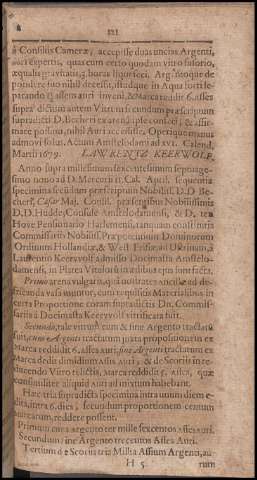 121
à Consiliis Cameræ, accepisse duas uncias Argenti,
auri expertis, quas cum certo quodam vitro fusorio,
æqualis gravitatis, 3. horas liquefeci, Argentoque de
pondere suo nihil decessit, istudque in Aqua forti se-
parando 6. asses auri inveni, & Marca reddit 6. asses
supra dictum autem Vitrum secundum præscriptum
supradicti D. Becheri ex arena ipse confeci, & affir-
mare possum, nihil Auri accessisse. Operique manus
admovi solus. Actum Amstelodami ad xvi. Calend.
Martii 1679. LAWRENTZ KEERWOLF.
Anno supra millesimum sexcentesimum septuage-
simo nono ad D. Mercurii 11. Cal. April. sequentia
specimina secundum præscriptum Nobiliss. D. D. Be-
cheri, Cæsar Maj. Consil. præsentibus Nobilissimis
D.D. Hudde, Consule Amstelodamensi, & D. ten
Hove Pensionario Harlemensi, tanquam constitutis
Commissariis Nobiliss. Præpotentium Dominorum
Ordinum Hollandiæ, & West-Frisiæ, ad Usrinum, à
Laurentio Keerwolf admisso Docimasta Amstelo-
damensi, in Platea Vitoris in ædibus ejus sunt facta.
Primo arena vulgaris, qua nostrates ancillæ ad de-
tergenda vasa utuntur, cum requisitis Materialibus in
certa Proportione coram supradictis Dn. Commis-
sariis à Docimasta Keerwolf vitrificata est.
Secundo, tale vitrum cum & sine Argento tractatum
fuit, cum Argenti tractatum juxta propositionem ex
Marca reddidit 6. asses auri, sine Argenti tractatum ex
Marca dedit dimidium Assis auri; & de Scoriis in re-
ducendo Vitro relictis, Marca reddidit 5. Asses, quæ
consimiliter aliquid auri ad mixtum habebant.
Hæc tria supradicta specimina intra unum diem e-
dita, intra 6. dies, secundum proportionem centum
marcarum, reddere possent.
Primum cum argento ter mille sexcentos Asses auri.
Secundum sine Argento trecentos Asses Auri.
Tertium de Scoriis tria Millia Assium Argenti, au-
H 5 rum